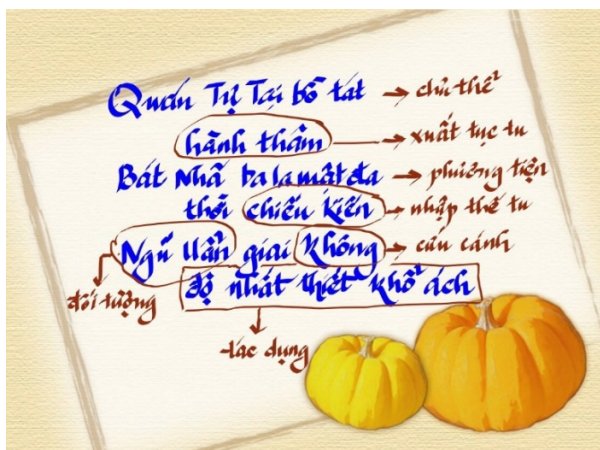 Quán Tự Tại bồ tát → chủ thể
hành thâm → xuất tục tu
Bát Nhã ba la mật đa → phương tiện
thời chiếu kiến → nhập thế tu
Ngũ Uẩn giai không → cứu cánh
độ nhất thiết khổ ách
đối tượng
tác dụng